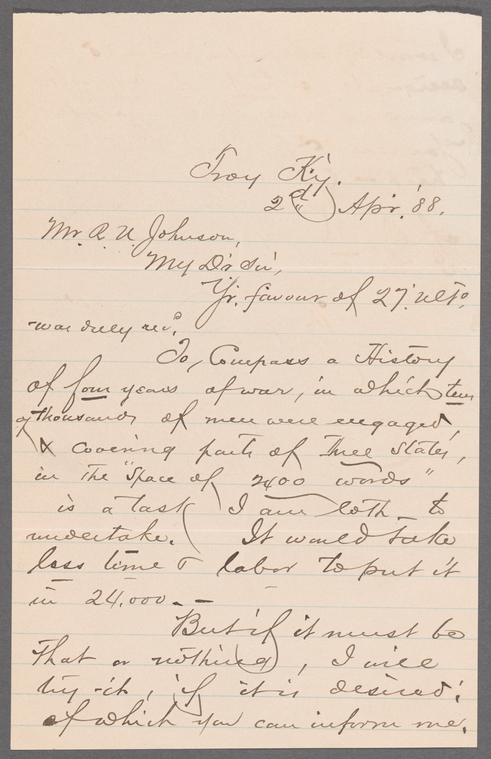 Troy Ky.
2d Apr. '88.
Mr. R. U. Johnson,
My Dr Sir,
Yr. favour of 27. ulto.
was duly recd.
To, Compass a History
of four years of war, in which tens
of thousands of men were engaged,
& covering parts of three States,
in the "Space of 2400 words"
is a task I am loth to
undertake. It would take
less time & labor to put it
in 24.000. -
But if it must be
that or nothing, I will
try it, if it is desired:
of which you can inform me.